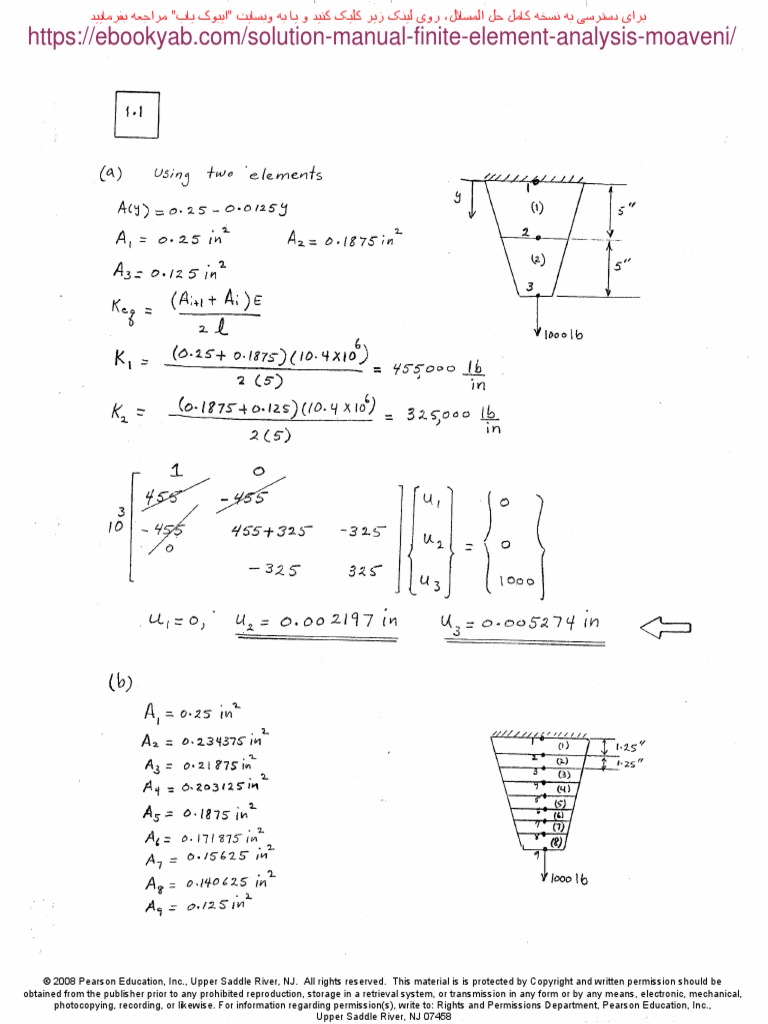 برای دسترسی به نسخه کامل حل المسائل، روی لینک زیر کلیک کنید و یا به وبسایت "ایبوک یاب" مراجعه بفرمایید
https://ebookyab.com/solution-manual-finite-element-analysis-moaveni/
1.1
(a) Using two elements
A(y) = 0.25 - 0.0125y
A₁ = 0.25 in² A₂ = 0.1875 in²
A₃ = 0.125 in²
Keq = (Ai+1 + Ai)E / 2l
K₁ = (0.25 + 0.1875)(10.4×10⁶) / 2(5) = 455,000 lb/in
K₂ = (0.1875 + 0.125)(10.4×10⁶) / 2(5) = 325,000 lb/in
y
1
(1)
5"
2
(2)
5"
3
1000 lb
1 0
455 -455
10³ -455 455+325 -325 u₁ 0
0 u₂ = 0
-325 325 u₃ 1000
u₁ = 0, u₂ = 0.002197 in u₃ = 0.005274 in
(b)
A₁ = 0.25 in²
A₂ = 0.234375 in²
A₃ = 0.21875 in²
A₄ = 0.203125 in²
A₅ = 0.1875 in²
A₆ = 0.171875 in²
A₇ = 0.15625 in²
A₈ = 0.140625 in²
A₉ = 0.125 in²
1 (1) 1.25"
2 (2) 1.25"
3 (3)
4 (4)
5 (5)
6 (6)
7 (7)
8 (8)
9
1000 lb
© 2008 Pearson Education, Inc., Upper Saddle River, NJ. All rights reserved. This material is is protected by Copyright and written permission should be
obtained from the publisher prior to any prohibited reproduction, storage in a retrieval system, or transmission in any form or by any means, electronic, mechanical,
photocopying, recording, or likewise. For information regarding permission(s), write to: Rights and Permissions Department, Pearson Education, Inc.,
Upper Saddle River, NJ 07458